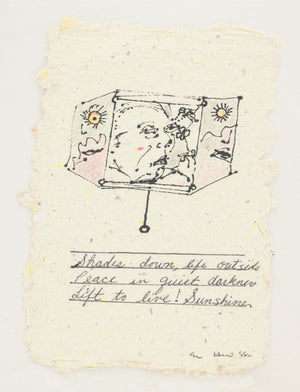 Shades down, life outside
Peace in quiet darkness
Lift to live! Sunshine.